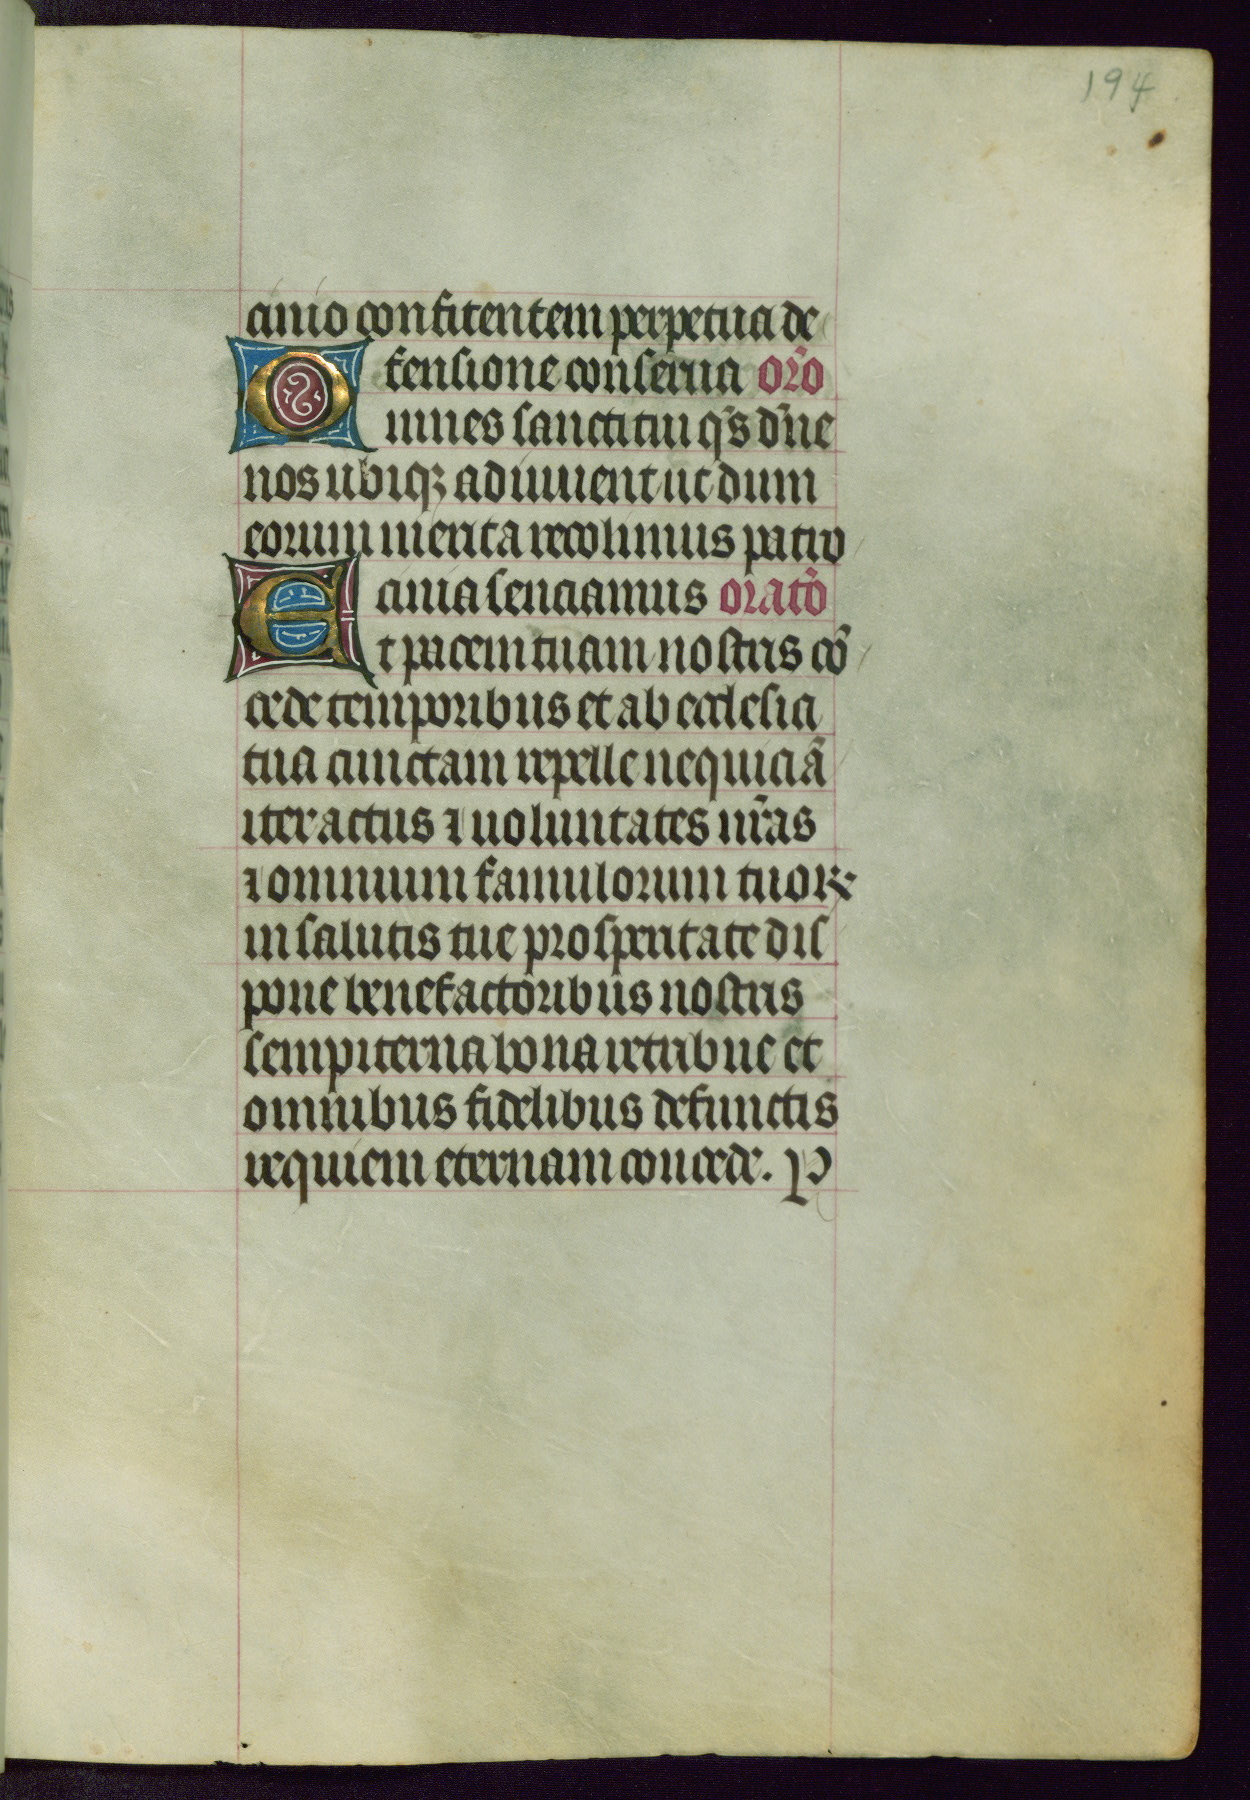 194
cinio confitentem perpetua de
fensione conserua or̄o
Omnes sancti tui q̄s dn̄e
nos ubiqꝫ adiuuent ut dum
eorum merita recolimus patro
cinia senciamus orat̄o
Et pacem tuam nostris cō
cede temporibus et ab ecclesia
tua cunctam repelle nequiciā
iter actus ⁊ uoluntates nr̄as
⁊ omnium famulorum tuoꝝ
in salutis tue prosperitate dis
pone benefactoribus nostris
sempiterna bona retribue et
omnibus fidelibus defunctis
requiem eternam concede. P